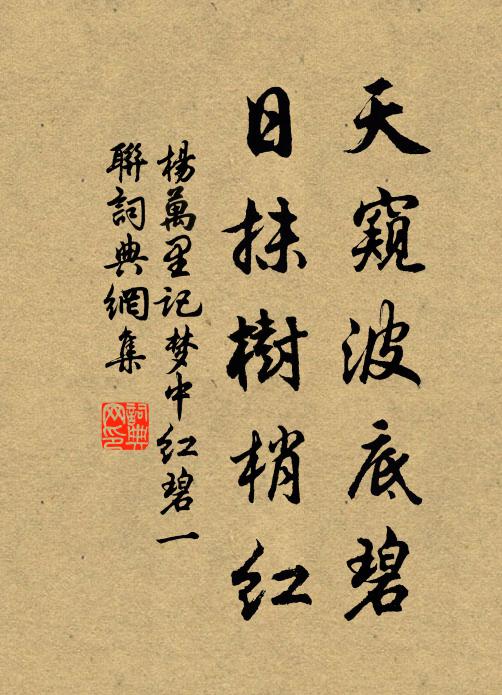 天窺波底碧
日抹樹梢紅
楊萬里记梦中红碧一
聯詞典網集
詞典
网印